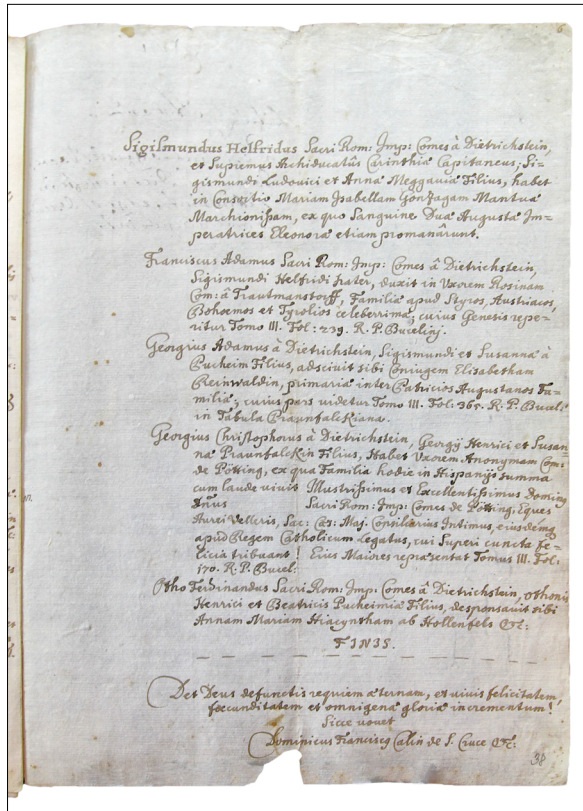 Sigismundus Helfridus Sacri Rom: Imp: Comes à Dietrichstein,
et Supremus Archiducatûs Carinthiæ Capitaneus, Si=
gismundi Ludovici et Annæ Meggaviæ Filius, habet
in Consortio Mariam Isabellam Gonzagam Mantuæ
Marchionissam, ex quo Sanguine Duæ Augustæ Im=
peratrices Eleonoræ etiam promanârunt.
Franciscus Adamus Sacri Rom: Imp: Comes â Dietrichstein,
Sigismundi Helfridi frater, duxit in Vxorem Rosinam
Com: â Trautmanstorff, Familiâ apud Styros, Austriacos,
Bohoemos et Tyrolios celeberrimâ; cuius Genesis repe=
ritur Tomo III. Fol: 239. R. P. Bucelinj.
Georgius Adamus à Dietrichstein, Sigismundi et Susannæ à
Pucheim Filius, adscivit sibi Coniugem Elisabetham
Reinwaldin, primariâ inter Patricios Augustanos Fa=
miliâ; cuius pars videtur Tomo III. Fol: 365. R. P. Bucel:
in Tabula Praunfalckiana.
Georgius Christophorus à Dietrichstein, Georgij Henrici et Susan=
næ Praunfalckin Filius, Habet Vxorem Anonymam Com:
de Pötting, ex qua Familia hodie in Hispanijs summa
cum laude vivit Illustrissimus et Excellentissimus Doming
Dn̄us Sacri Rom: Imp: Comes de Pötting, Eques
Aurei Velleris, Sac: Cæs: Maj. Consiliarius Intimus, eiusdemq
apud Regem Catholicum Legatus, cui Superi cuncta fe=
licia tribuant! Eius Maiores repræsentat Tomus III. Fol:
170. R. P. Bucel:
Otho Ferdinandus Sacri Rom: Imp: Comes â Dietrichstein, Othonis
Henrici et Beatricis Pucheimiæ Filius, desponsavit sibi
Annam Mariam Hiacyntham ab Hollenfels &c:
FINIS.
Det Deus defunctis requiem æternam, et vivis felicitatem,
fœcunditatem et omnigenæ gloriæ incrementum!
Sicce vovet
Dominicus Franciscq Calin de S. Cruce &c:
38